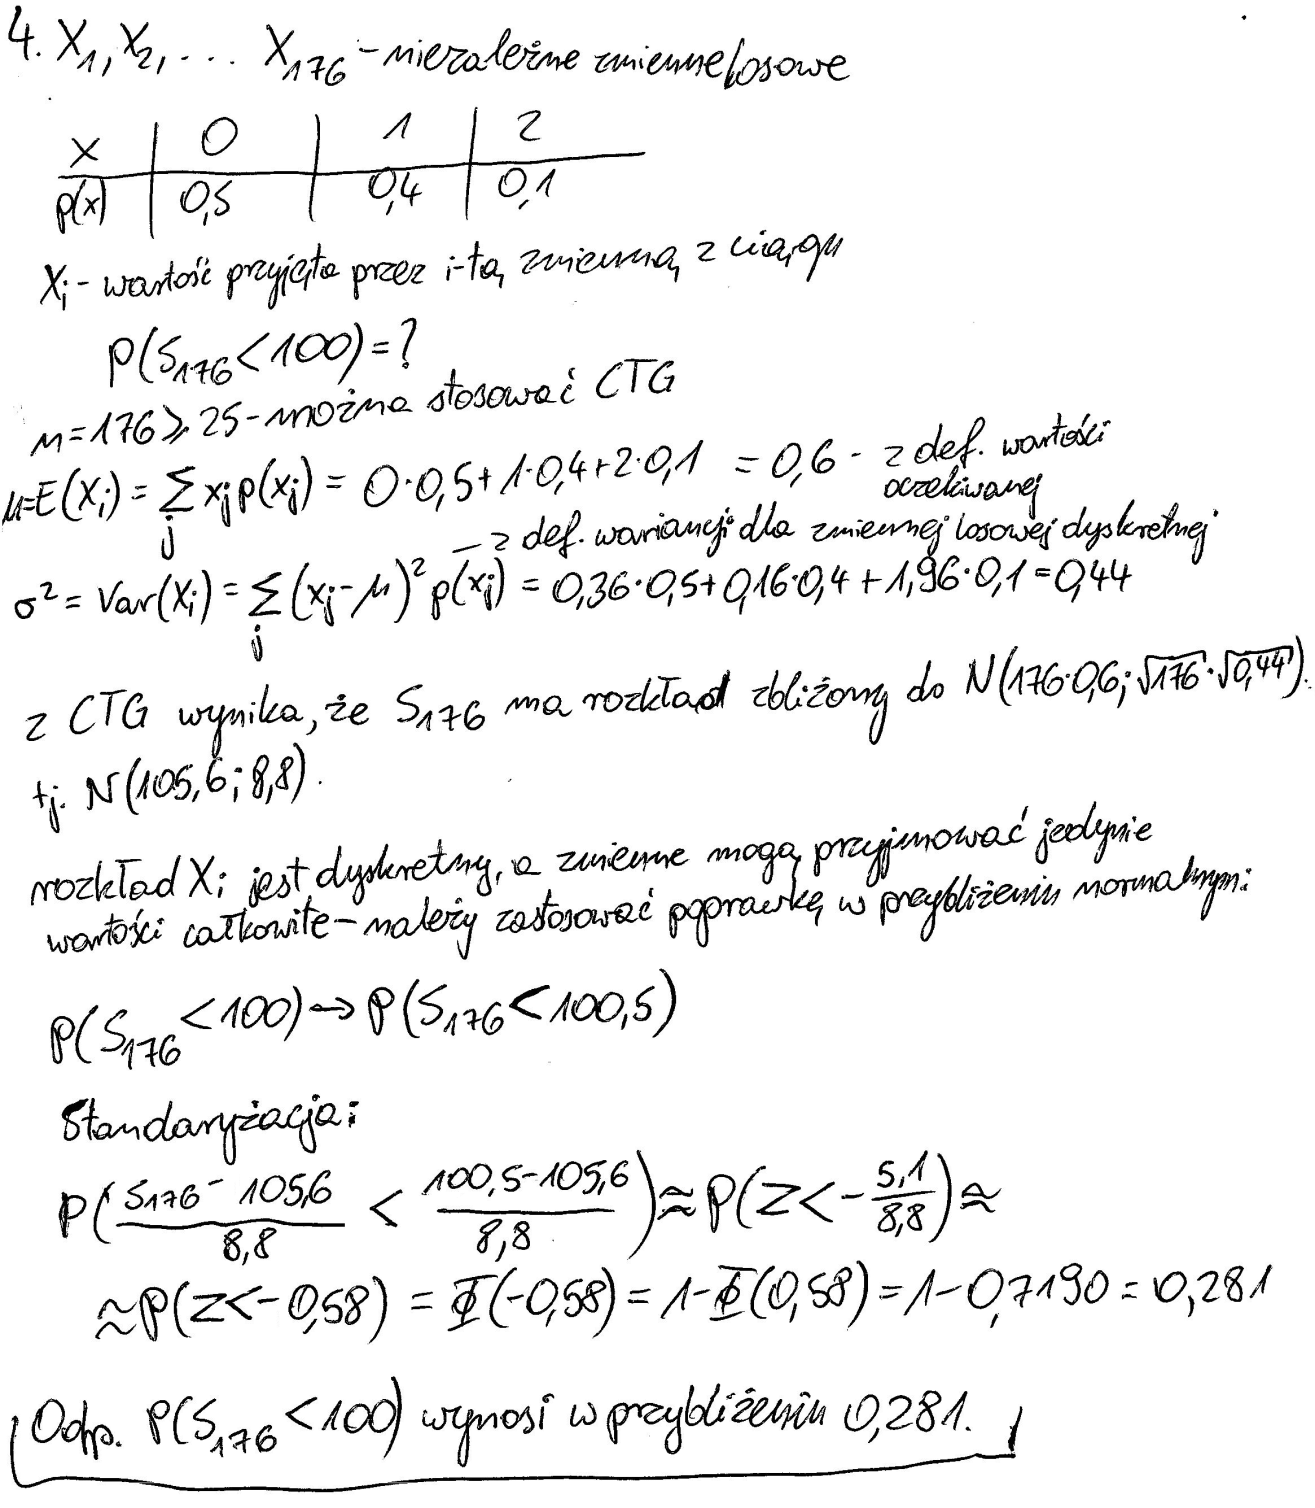 4. X₁, X₂, ... X₁₇₆ - niezależne zmienne losowe
x | 0 | 1 | 2
p(x) | 0,5 | 0,4 | 0,1
Xᵢ - wartość przyjęta przez i-tą zmienną z ciągu
P(S₁₇₆ < 100) = ?
n = 176 ⩾ 25 - można stosować CTG
μ = E(Xᵢ) = ∑ⱼ xⱼ p(xⱼ) = 0·0,5 + 1·0,4 + 2·0,1 = 0,6 - z def. wartości
oczekiwanej
— z def. wariancji dla zmiennej losowej dyskretnej
σ² = Var(Xᵢ) = ∑ⱼ (xⱼ - μ)² p(xⱼ) = 0,36·0,5 + 0,16·0,4 + 1,96·0,1 = 0,44
z CTG wynika, że S₁₇₆ ma rozkład zbliżony do N(176·0,6; √176·√0,44).
tj. N(105,6; 8,8).
rozkład Xᵢ jest dyskretny, a zmienne mogą przyjmować jedynie
wartości całkowite - należy zastosować poprawkę w przybliżeniu normalnym:
P(S₁₇₆ < 100) → P(S₁₇₆ < 100,5)
Standaryzacja:
P((S₁₇₆ - 105,6)/8,8 < (100,5 - 105,6)/8,8) ≈ P(Z < -5,1/8,8) ≈
≈ P(Z < -0,58) = Φ(-0,58) = 1 - Φ(0,58) = 1 - 0,7190 = 0,281
Odp. P(S₁₇₆ < 100) wynosi w przybliżeniu 0,281.